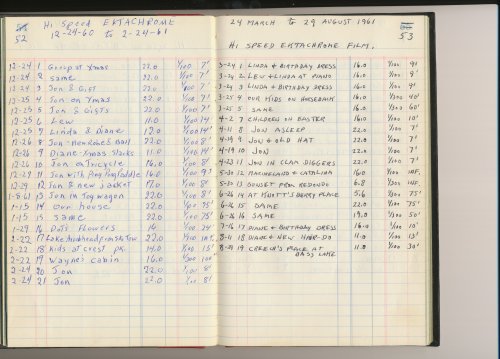 52
Hi Speed EKTACHROME
12-24-60 to 2-24-61
12-24 1 Group at Xmas 22.0 1/100 7'
12-24 2 same 22.0 1/100 7'
12-24 3 Jon & Gift 22.0 1/100 7'
12-25 4 Jon on Xmas 22.0 1/100 7'
12-25 5 Jon & Gifts 22.0 1/100 7'
12-25 6 Lew 11.0 1/100 14'
12-25 7 Linda & Diane 12.0 1/100 14'
12-26 8 Jon 22.0 1/100 8'
12-26 9 Diane Xmas Slacks 11.0 1/100 14'
12-26 10 Jon on Tricycle 16.0 1/100 8'
11 Jon with Ping Pong Paddle 16.0 1/100 9'
12-29 12 Jon & new jacket 17.0 1/100 8'
1-8-61 13 Jon in Toy wagon 22.0 1/100 8'
1-15 14 our house 22.0 1/100 75'
1-15 15 same 22.0 1/100 75'
1-29 16 Dot's Flowers 14
2-22 17 Lake 22.0 1/100 inf.
2-22 18 Kids at crest pk. 14.0 1/100 15'
2-22 19 Wayne's cabin 16.0 100'
2-24 20 Jon 22.0 1/100 8'
2-24 21 Jon 22.0 1/100 8'
24 MARCH to 29 AUGUST 1961
53
Hi SPEED EKTACHROME FILM.
3-24 1 LINDA & BIRTHDAY DRESS 16.0 1/100 9'
3-24 2 LEW & LINDA AT PIANO 16.0 1/100 8'
3-24 3 LINDA & BIRTHDAY DRESS 16.0 1/100 9'
3-25 4 OUR KIDS ON HORSEBACK 16.0 1/300 40'
3-25 5 SAME 16.0 1/300 60'
4-2 7 CHILDREN ON EASTER 16.0 1/100 10'
4-11 8 JON ASLEEP 22.0 1/100 7'
4-19 9 JON & OLD HAT 22.0 1/100 7'
4-19 10 JON 22.0 1/100 7'
4-23 11 JON IN CLAM DIGGERS 22.0 1/100 7'
5-30 12 MACHINELAND & CATALINA 16.0 1/100 INF.
6-8 13 SUNSET FROM REDONDO 6.8 1/300 INF.
6-26 14 AT KNOTT'S BERRY PLACE 5.6 1/100 75'
6-16 15 SAME 22.0 1/100 75'
6-26 16 SAME 19.0 1/300 50'
7-16 17 DIANE & BIRTHDAY DRESS 16.0 10'
8-4 18 DIANE & NEW HAIR-DO 11.0 1/100 13'
8-29 19 CREECH'S PLACE AT BASS LAKE 11.0 1/100 30'